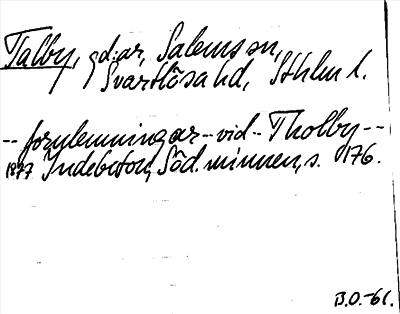 Talby, gd:ar, Salems sn,
Svartlösa hd, Sthlm l.
-- fornlemningar -- vid -- Tholby --
1877 Indebetou, Söd. minnen, s. 176.
B.O. -61.